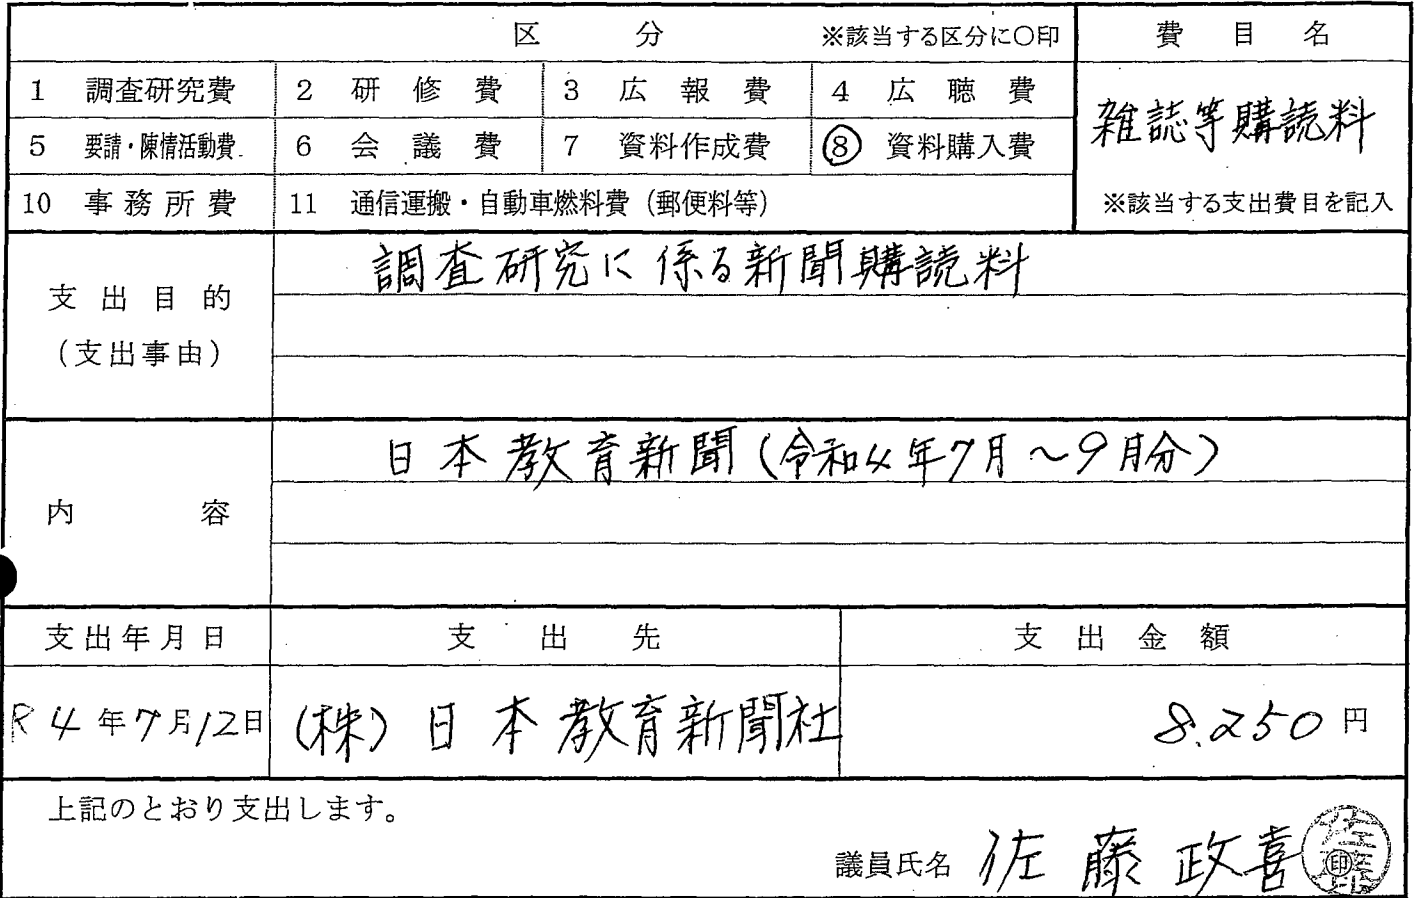 区 分 ※該当する区分に○印 費 目 名
1 調査研究費 2 研 修 費 3 広 報 費 4 広 聴 費
雑誌等購読料
5 要請・陳情活動費 6 会 議 費 7 資料作成費 ⑧ 資料購入費
10 事 務 所 費 11 通信運搬・自動車燃料費（郵便料等） ※該当する支出費目を記入
調査研究に係る新聞購読料
支 出 目 的
（支出事由）
日本教育新聞（令和4年7月～9月分）
内 容
支出年月日 支 出 先 支 出 金 額
R4年7月12日 （株）日本教育新聞社 8,250円
上記のとおり支出します。
議員氏名 佐藤政喜 ㊞